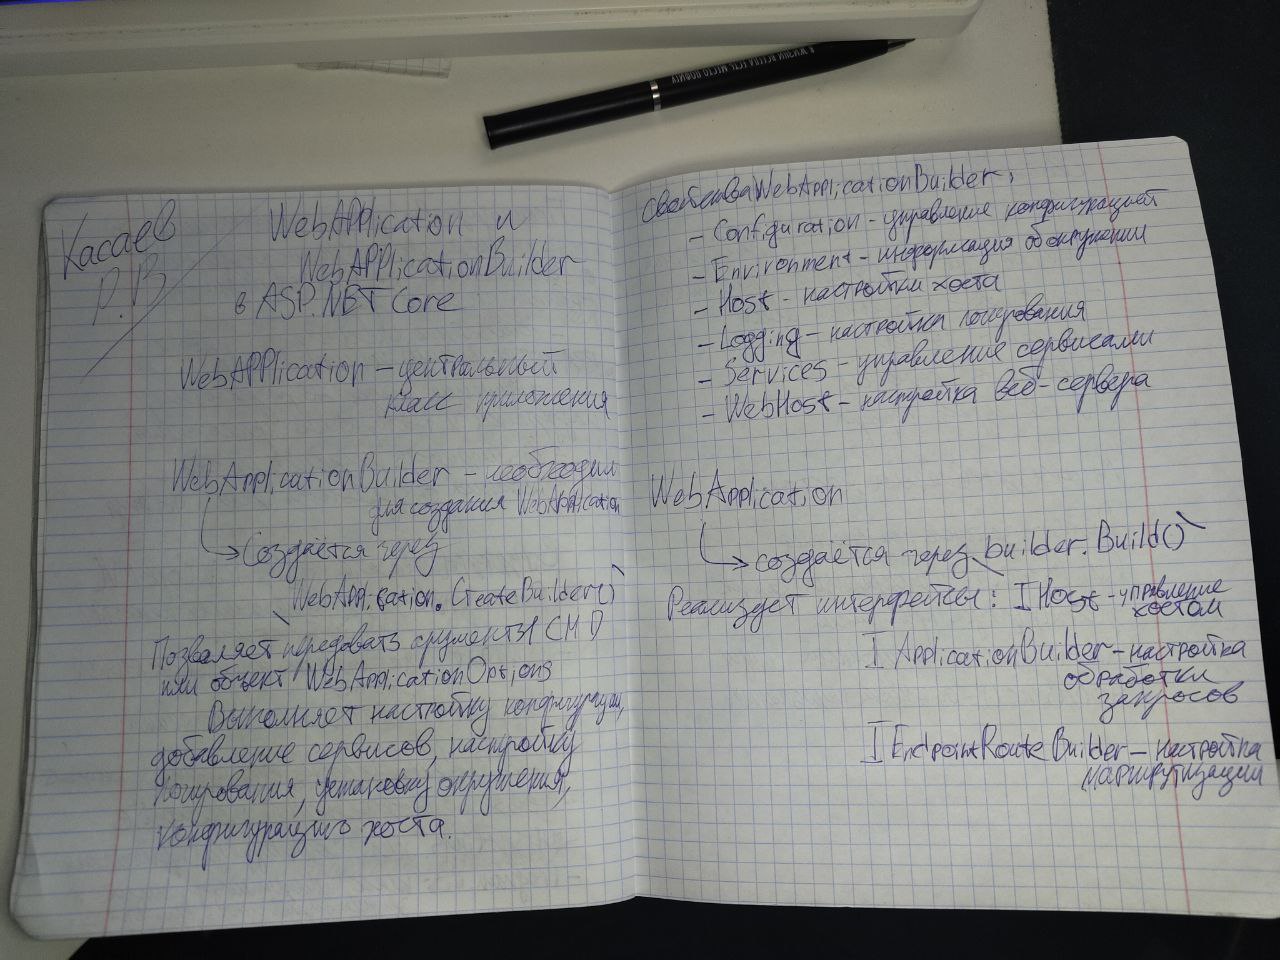 Хасаев
Р.В
WebAPPlication и
WebAPPlicationBuilder
в ASP.NET Core
WebAPPlication – центральный
класс приложения
WebApplicationBuilder – необходим
для создания WebApplication
Создаётся через
WebApplication.CreateBuilder()
Позволяет передовать аргументы CMD
или объект WebApplicationOptions
Выполняет настройку конфигурации,
добавление сервисов, настройку
логирования, установку окружения,
конфигурацию хоста.
свойства WebApplicationBuilder:
- Configuration – управление конфигурацией
- Environment – информация об окружении
- Host – настройки хоста
- Logging – настройка логирования
- Services – управление сервисами
- WebHost – настройка веб-сервера
WebApplication
создаётся через builder.Build()
Реализует интерфейсы: IHost – управление
хостом
IApplicationBuilder – настройка
обработки
запросов
IEndpointRouteBuilder – настройка
маршрутизации